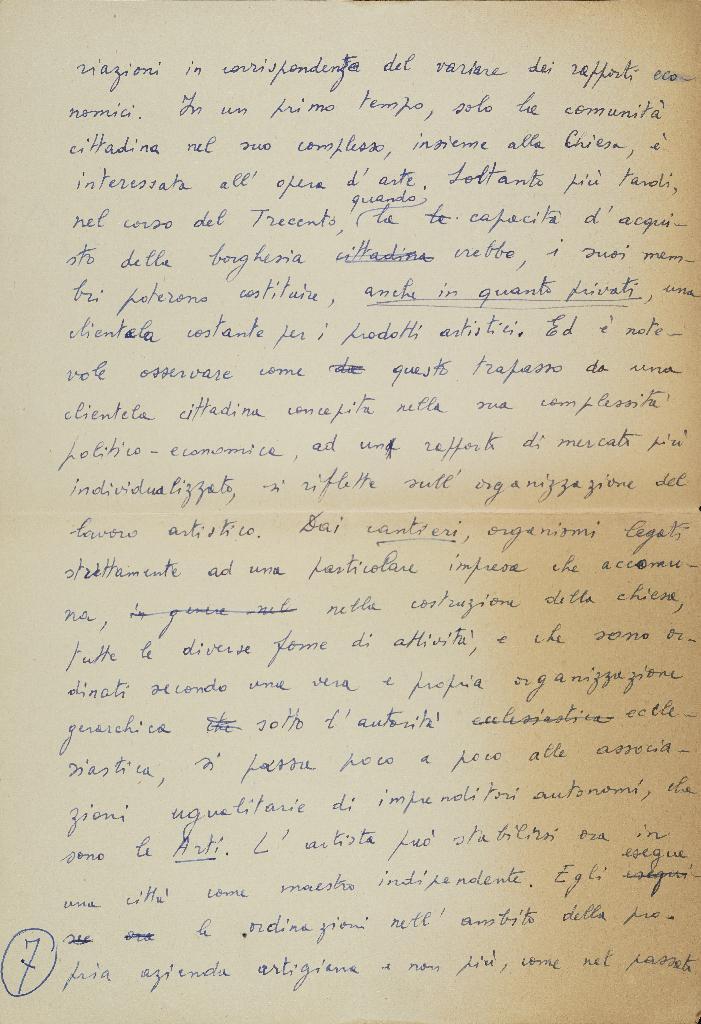 riazioni in corrispondenza del variare dei rapporti eco-
nomici. In un primo tempo, solo la comunità
cittadina nel suo complesso, insieme alla Chiesa, è
interessata all' opera d' arte. Soltanto più tardi,
quando
nel corso del Trecento, la la capacità d' acqui-
sto della borghesia cittadina crebbe, i suoi mem-
bri poterono costituire, anche in quanto privati, una
clientela costante per i prodotti artistici. Ed è note-
vole osservare come da questo trapasso da una
clientela cittadina concepita nella sua complessità
politico-economica, ad un rapporto di mercato più
individualizzato, si riflette sull' organizzazione del
lavoro artistico. Dai cantieri, organismi legati
strettamente ad una particolare impresa che accomu-
na, in genere nel nella costruzione della chiesa,
tutte le diverse fome di attività, e che sono or-
dinati secondo una vera e propria organizzazione
gerarchica che sotto l' autorità ecclesiastica eccle-
siastica, si passa poco a poco alle associa-
zioni ugualitarie di imprenditori autonomi, che
sono le Arti. L' artista può stabilirsi ora in
esegue
una città come maestro indipendente. Egli esegui-
sce ora le ordinazioni nell' ambito della pro-
pria azienda artigiana e non più, come nel passato
7